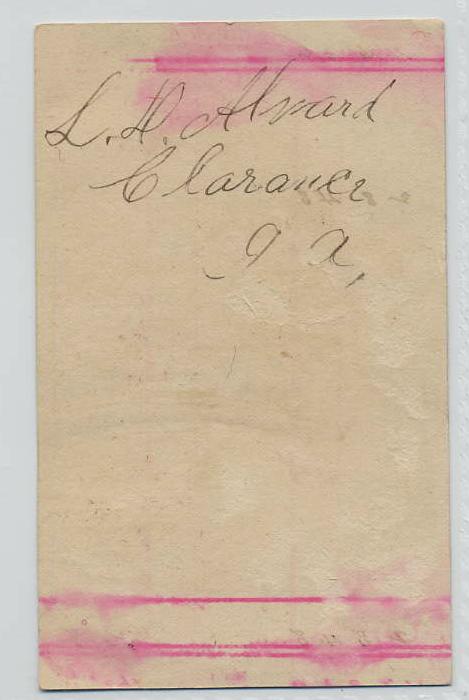 L. H. Alvard
Clarance
Ia,